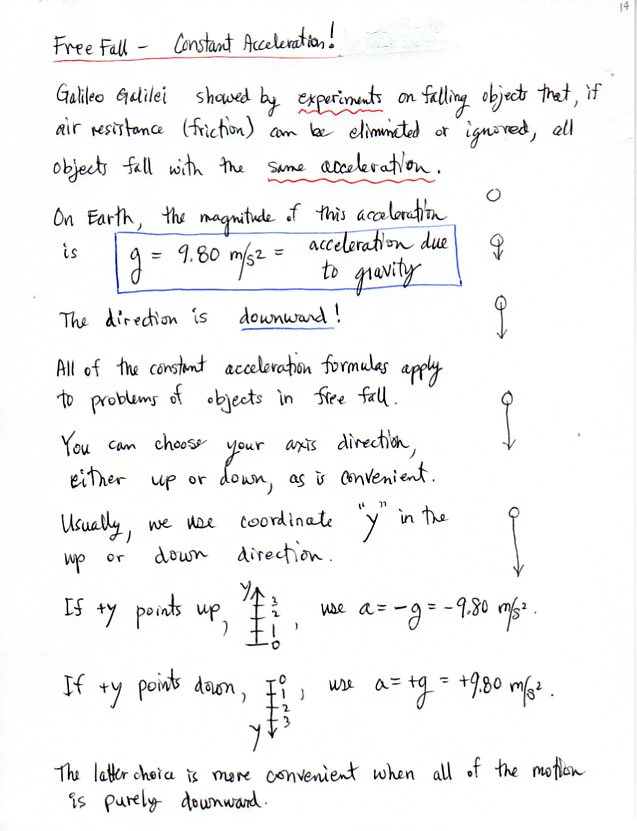 14
Free Fall - Constant Acceleration!
Galileo Galilei showed by experiments on falling objects that, if
air resistance (friction) can be eliminated or ignored, all
objects fall with the same acceleration.
On Earth, the magnitude of this acceleration
is g = 9.80 m/s² = acceleration due
to gravity
The direction is downward!
All of the constant acceleration formulas apply
to problems of objects in free fall.
You can choose your axis direction,
either up or down, as is convenient.
Usually, we use coordinate "y" in the
up or down direction.
If +y points up, y 3 2 1 0, use a = -g = -9.80 m/s².
If +y points down, 0 1 2 3 y, use a = +g = +9.80 m/s².
The latter choice is more convenient when all of the motion
is purely downward.